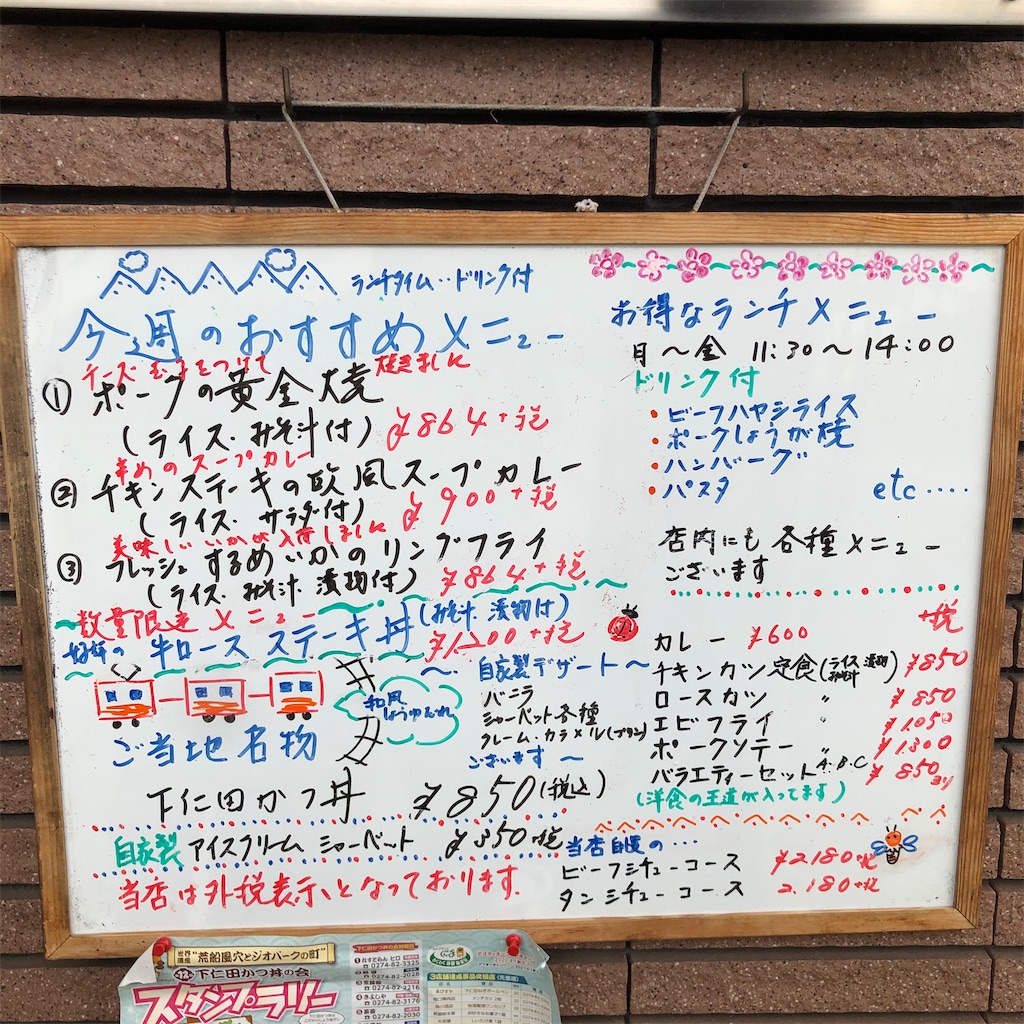 ランチタイム‥ドリンク付
今週のおすすめメニュー
チーズ玉子をつけて焼きました
① ポークの黄金焼
(ライス・みそ汁付) ¥864+税
辛めのスープカレー
② チキンステーキの欧風スープカレー
(ライス・サラダ付) ¥900+税
美味しいいかが入荷しました
③ フレッシュするめいかのリングフライ
(ライス・みそ汁・漬物付) ¥864+税
数量限定メニュー
好評の 牛ロースステーキ丼 (みそ汁・漬物付)
¥1200+税
和風
しょうゆだれ
ご当地名物
下仁田かつ丼 ¥850(税込)
〜自家製デザート〜
バニラ
シャーベット各種
クレーム・カラメル(プリン)
ございます〜
自家製 アイスクリーム シャーベット ¥350+税
当店は外税表示となっております.
お得なランチメニュー
月〜金 11:30〜14:00
ドリンク付
・ビーフハヤシライス
・ポークしょうが焼
・ハンバーグ
・パスタ etc‥‥
店内にも各種メニュー
ございます
+税
カレー ¥600
チキンカツ定食(ライス みそ汁 漬物) ¥850
ロースカツ 〃 ¥850
エビフライ ¥1050
ポークソテー 〃 ¥1300
バラエティーセット A.B.C ¥850より
(洋食の王道が入ってます)
当店自慢の‥‥
ビーフシチューコース ¥2180+税
タンシチューコース 2.180+税
世界遺産 "荒船風穴とジオパークの町"
下仁田かつ丼の会
スタンプラリー
☎0274-82-3325
☎0274-82-2028
☎0274-82-2216
☎0274-82-3176
☎0274-82-2030